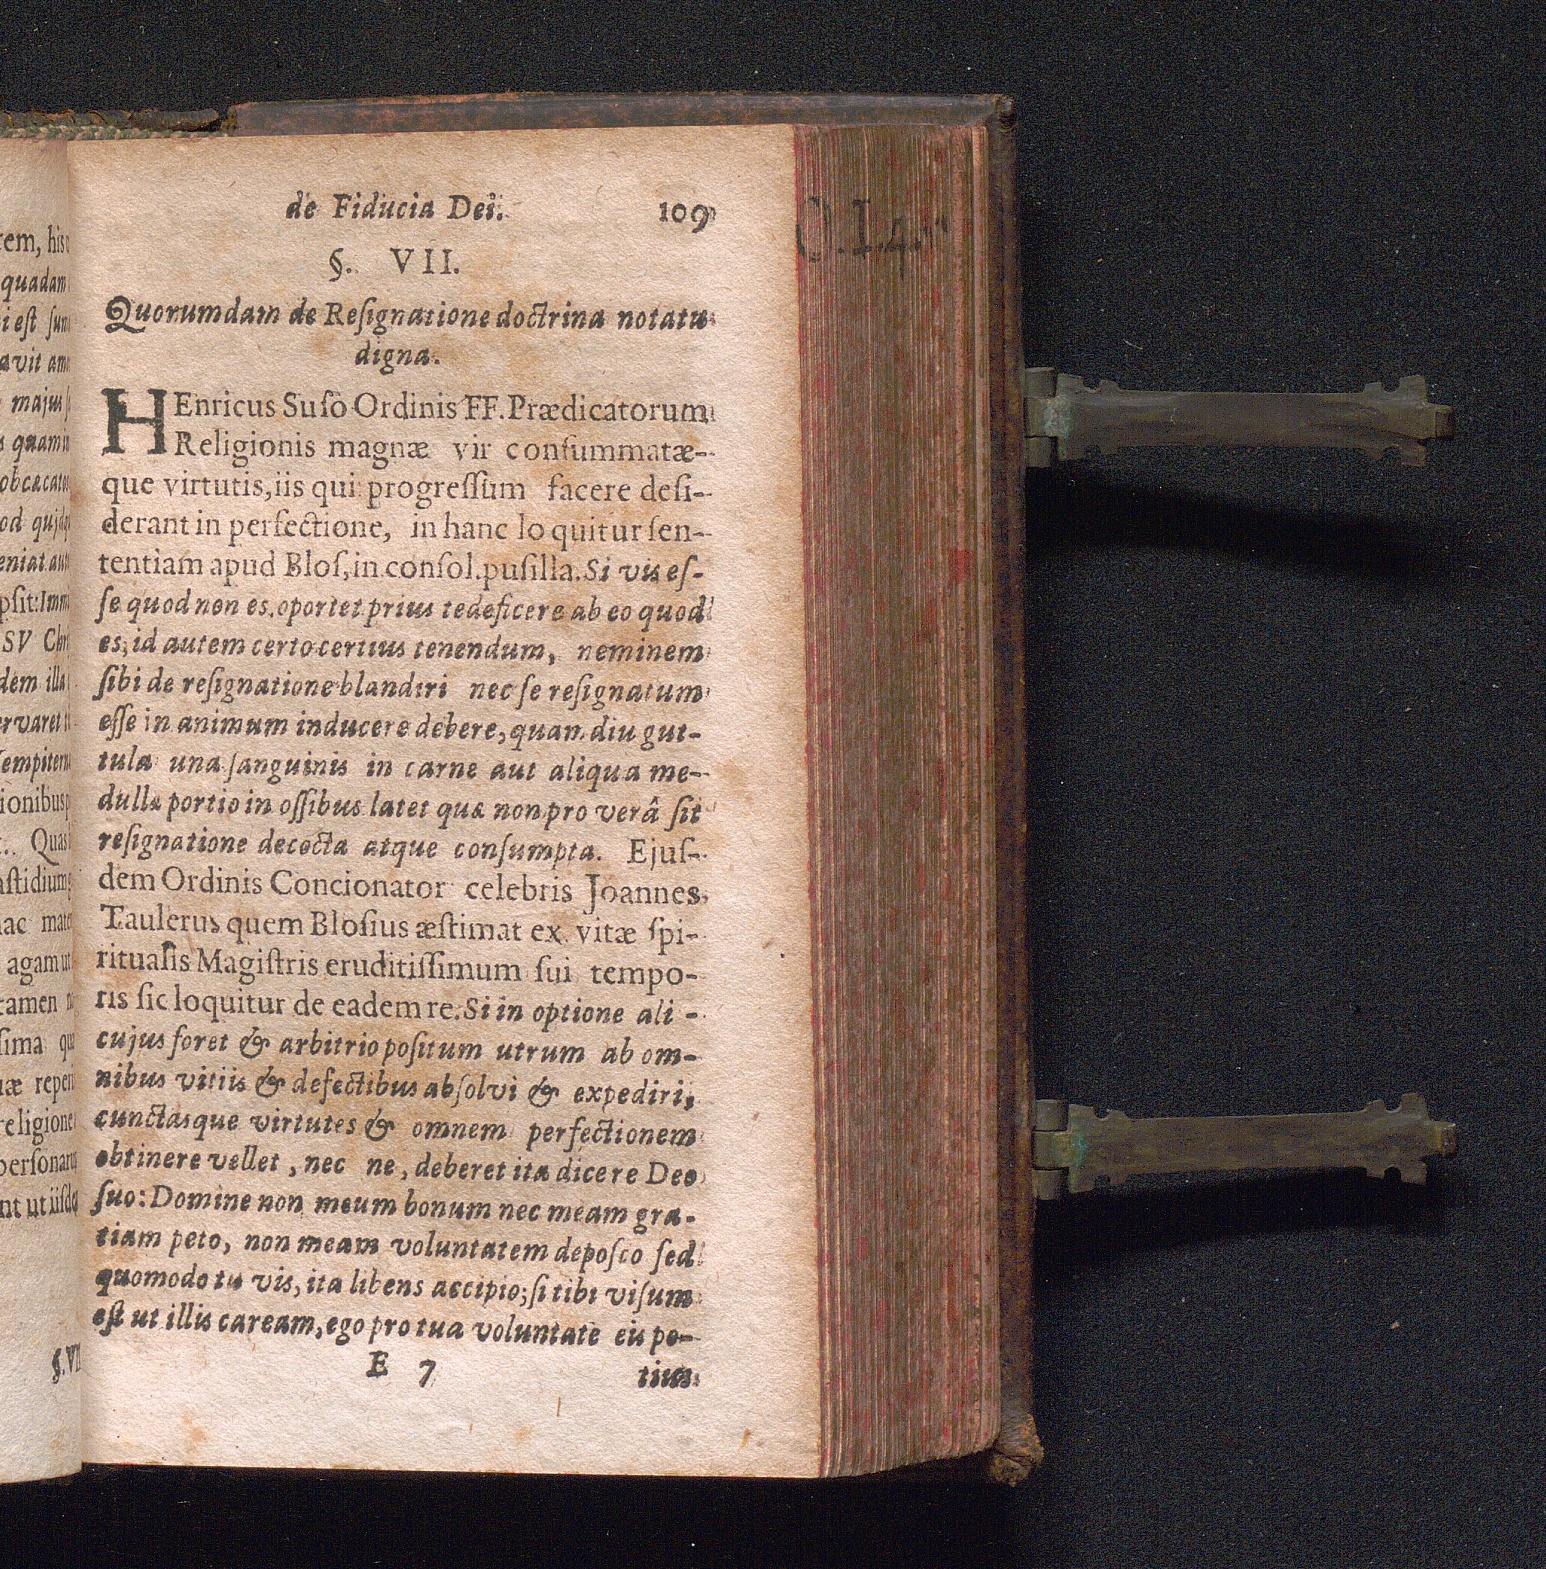 de Fiducia Dei. 109
§. VII.
Quorumdam de Reſignatione doctrina notatu
digna.
HEnricus Suſo Ordinis FF. Prædicatorum
Religionis magnæ vir conſummatæ-
que virtutis, iis qui progreſſum facere deſi-
derant in perfectione, in hanc lo quitur ſen-
tentiam apud Bloſ, in conſol. puſilla. Si vis eſ-
ſe quod non es, oportet prius te deficere ab eo quod
es, id autem certo certius tenendum, neminem
ſibi de reſignatione blandiri nec ſe reſignatum
eſſe in animum inducere debere, quam diu gut-
tula una ſanguinis in carne aut aliqua me-
dullæ portio in oſſibus latet quæ non pro verâ ſit
reſignatione decocta atque conſumpta. Ejuſ-
dem Ordinis Concionator celebris Joannes
Taulerus quem Bloſius æſtimat ex vitæ ſpi-
ritualis Magiſtris eruditiſſimum ſui tempo-
ris ſic loquitur de eadem re. Si in optione ali-
cujus foret & arbitrio poſitum utrum ab om-
nibus vitiis & defectibus abſolvi & expediri,
cunctasque virtutes & omnem perfectionem
obtinere vellet, nec ne, deberet ita dicere Deo
ſuo: Domine non meum bonum nec meam gra-
tiam peto, non meam voluntatem depoſco ſed
quomodo tu vis, ita libens accipio; ſi tibi viſum
eſt ut illis caream, ego pro tua voluntate eis po-
E 7 tius
tem, his
quadam
i eſt ſum
avit am
majus
quam in
obcæcatos
eniat aut
pſit: Imm
SV Chri
dem illa
ervaret
ſempitern
ionibus
Quas
aſtidium
ac mate
agam ut
tamen
ſima qu
uæ reperi
religione
perſonarum
nt ut iiſde
§. VII